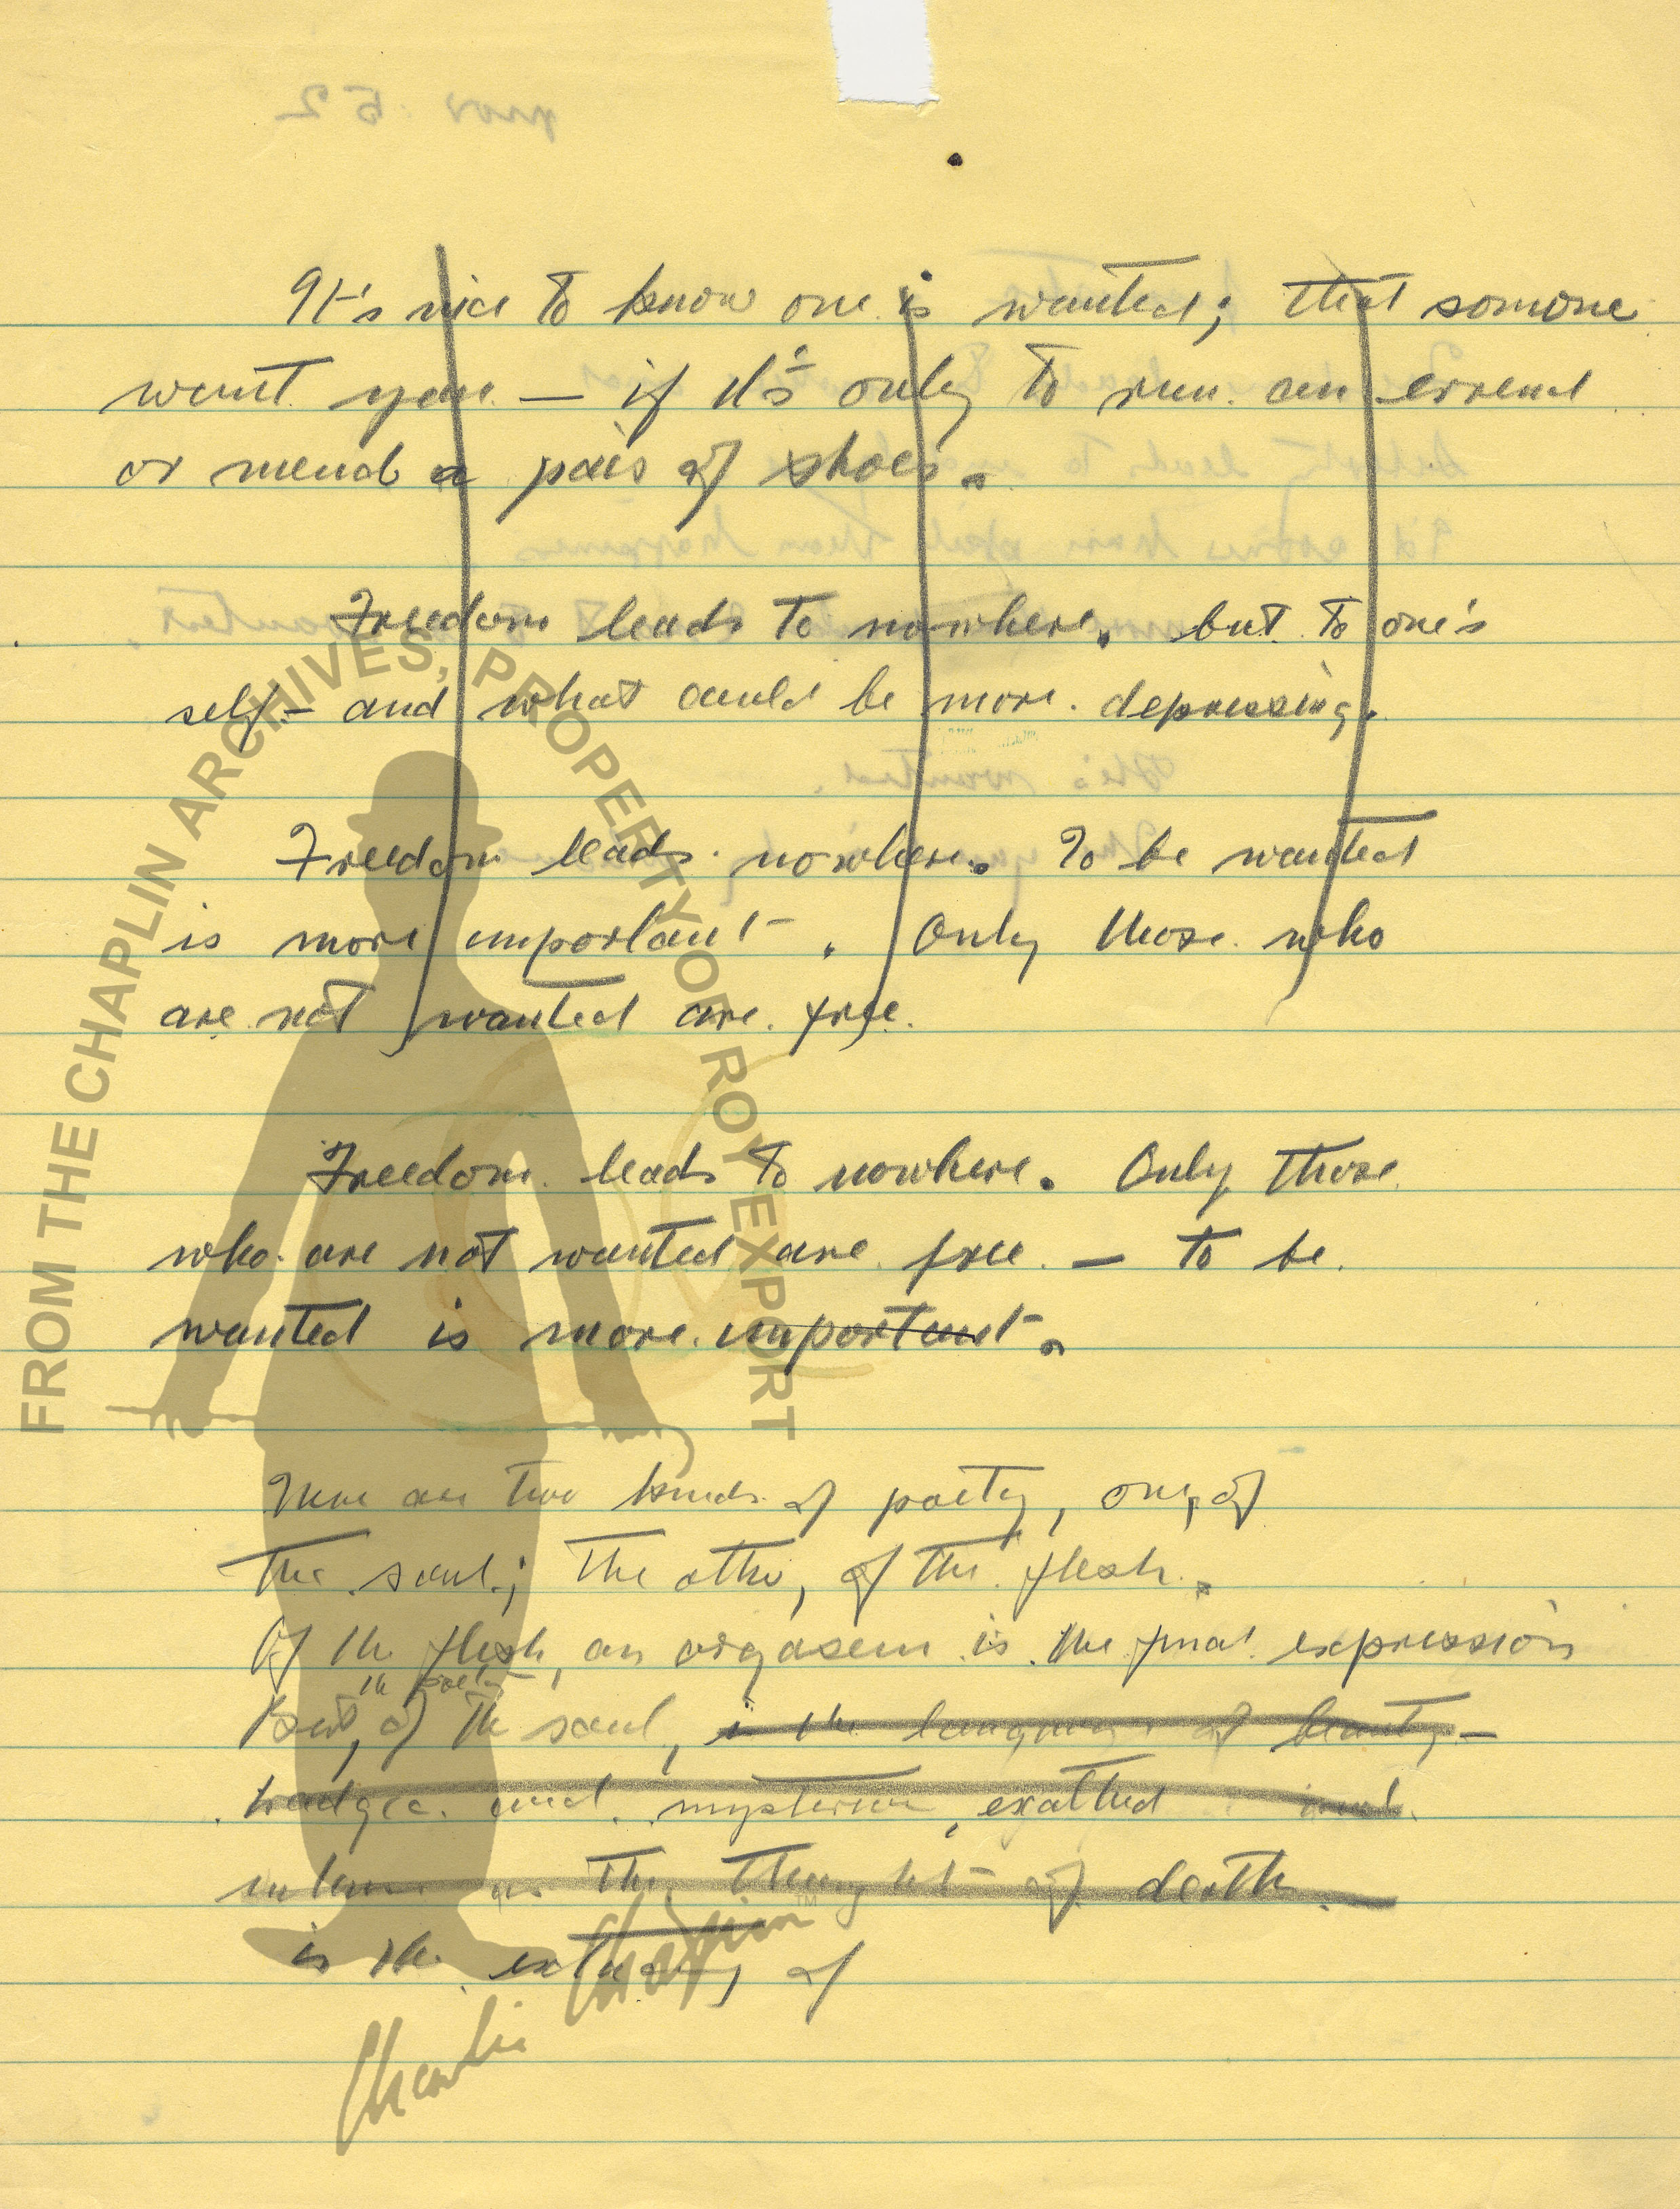 It's nice to know one is wanted; that somone
want you — if it's only to run an errend
or mend a pair of shoes.
Freedom leads to nowhere. but to one's
self — and what could be more depressing.
Freedom leads nowhere. To be wanted
is more important. Only those who
are not wanted are free.
Freedom leads to nowhere. Only those
who are not wanted are free — to be
wanted is more important.
There are two kinds of poetry, one, of
the soul; the other, of the flesh.
Of the flesh, an orgasem is the final expression
the poetry
But, of the soul, is the language of beauty —
tradgic and mysterious, exalted
intense as the thought of death.
is the of
FROM THE CHAPLIN ARCHIVES, PROPERTY OF ROY EXPORT
Charlie Chaplin
TM
nov. 52